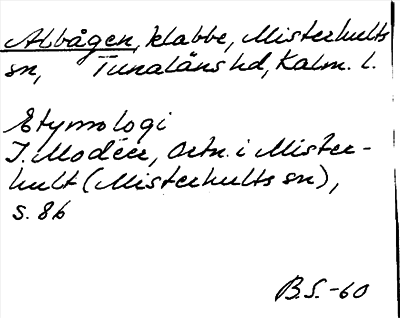 Albågen, klabbe, Misterhults
sn, Tunaläns hd, Kalm. l.
Etymologi
I. Modéer, Ortn. i Mister-
hult (Misterhults sn),
s. 86
B.S.-60